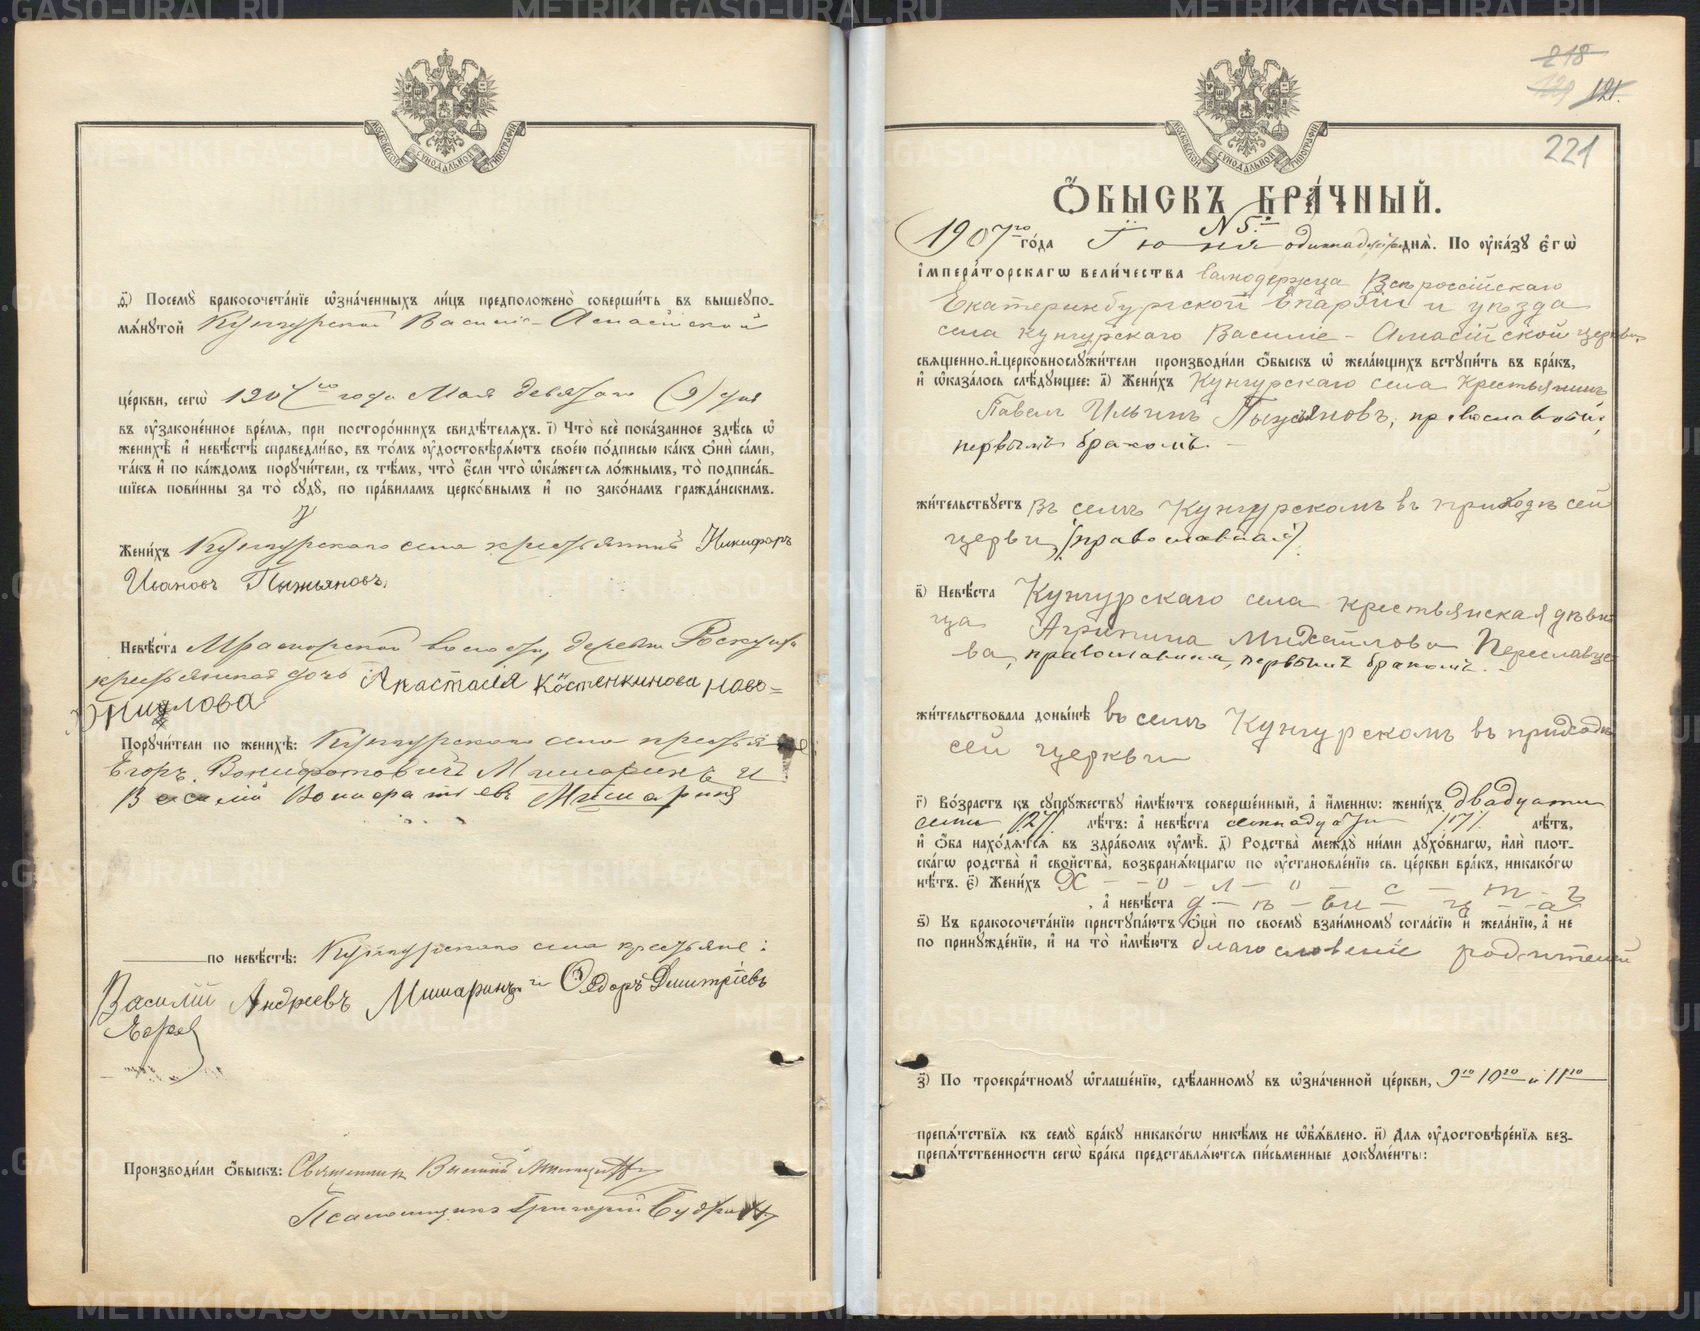 МОСКОВСКОЙ СѴНОДАЛЬНОЙ ТИПОГРАФІИ
д҃) Посемꙋ̀ бракосочета́нїе ѡ҆зна́ченныхъ ли́цъ предположено̀ соверши́ть въ вышеупо-
мѧ́нутой Кунгурской Василіе-Амасійской
це́ркви, сегѡ̀ 1907го года Мая девятаго (9) дня
въ оу҆зако́ненное вре́мѧ, при посторо́ннихъ свидѣ́телѧхъ. і҃) Что̀ всѐ пока́занное здѣ́сь ѡ҆
женихѣ̀ и҆ невѣ́стѣ справедли́во, въ то́мъ оу҆достовѣрѧ́ютъ свое́ю по́дписью ка́къ ѻ҆нѝ са́ми,
та́къ и҆ по ка́ждомъ поручи́тели, съ тѣ́мъ, что̀ є҆́сли что̀ ѡ҆ка́жетсѧ ло́жнымъ, то̀ подписа́в-
шїесѧ пови́нны за то̀ сꙋдꙋ̀, по пра́виламъ церко́внымъ и҆ по зако́намъ гражда́нскимъ.
Жени́хъ Кунгурскаго села крестьянинъ Никифоръ
Ивановъ Пыжьяновъ.
Невѣ́ста Мраморской волости, деревни
крестьянская дочь Анастасія Костенкинова
Порꙋчи́тели по женихѣ̀: Кунгурскаго села крестьяне
Егоръ Вонифатовичъ Мишаринъ и
Василій Вонифатьевъ Мишаринъ
по невѣ́стѣ: Кунгурскаго села крестьяне:
Василій Андреевъ Мишаринъ и Ѳедоръ Дмитріевъ
Производи́ли ѻ҆́быскъ: Священникъ Василій
Псаломщикъ Григорій
218
129 121.
221
МОСКОВСКОЙ СѴНОДАЛЬНОЙ ТИПОГРАФІИ
Ѻ҆́БЫСКЪ БРА́ЧНЫЙ.
N 5.
1907го го́да Іюня одиннадцать днѧ̀. По оу҆ка́зꙋ є҆гѡ̀
і҆мпера́торскагѡ вели́чества Самодержца Всероссійскаго
Екатеринбургской Епархіи и уѣзда
села Кунгурскаго Василіе-Амасійской церкви
свѧще́нно-и҆-церковнослꙋжи́тели производи́ли ѻ҆́быскъ ѡ҆ жела́ющихъ вступи́ть въ бра́къ,
и҆ ѡ҆каза́лось слѣ́дующее: а҃) Жени́хъ Кунгурскаго села крестьянинъ
Павелъ Ильинъ Пыжьяновъ, православный,
первымъ бракомъ.
жи́тельствуетъ въ селѣ Кунгурскомъ въ приходѣ сей
церкви, (православная)
в҃) Невѣ́ста Кунгурскаго села крестьянская дѣви
ца Агрипина Михайлова Переславце
ва, православная, первымъ бракомъ.
жи́тельствовала доны́нѣ въ селѣ Кунгурскомъ въ приходѣ
сей церкви
г҃) Во́зрастъ къ сꙋпрꙋ́жествꙋ и҆мѣ́ютъ соверше́нный, а҆ и҆́меннѡ: жени́хъ двадцати
семи /27/ лѣ́тъ: а҆ невѣ́ста семнадцати /17/ лѣ́тъ,
и҆ ѻ҆́ба нахо́дѧтсѧ въ здра́вомъ оу҆мѣ̀. д҃) Родства̀ междꙋ̀ ни́ми дꙋхо́внагѡ, и҆лѝ плот-
ска́гѡ родства̀ и҆ сво́йства, возбранѧ́ющагѡ по оу҆становле́нїю св. це́ркви бра́къ, никако́гѡ
нѣ́тъ. є҃) Жени́хъ х - о - л - о - с - т - ъ
, а҆ невѣ́ста д - ѣ - ви - ц - а
ѕ҃) Къ бракосочета́нїю пристꙋпа́ютъ ѻ҆нѝ по своемꙋ̀ взаи́мномꙋ согла́сїю и҆ жела́нїю, а҆ не
по принꙋжде́нїю, и҆ на то̀ и҆мѣ́ютъ благословеніе родителей
з҃) По троекра́тномꙋ ѡ҆глаше́нїю, сдѣ́ланномꙋ въ ѡ҆зна́ченной це́ркви, 9го 10го и 11го
препѧ́тствїѧ къ семꙋ̀ бра́кꙋ никако́гѡ никѣ́мъ не ѡ҆б̾ѧ́влено. и҃) Длѧ оу҆достовѣ́ренїѧ без-
препѧ́тственности сегѡ̀ бра́ка представлѧ́ютсѧ пи́сьменные докꙋме́нты:
METRIKI.GASO-URAL.RU